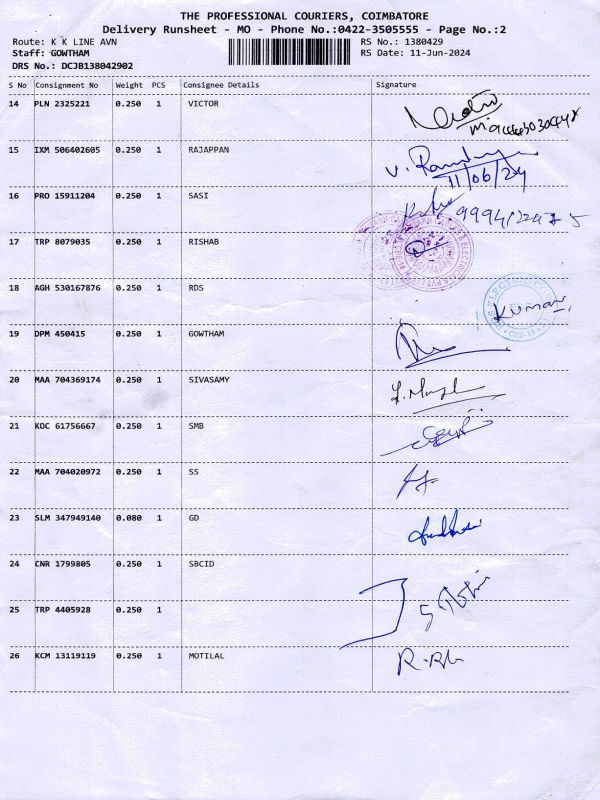 THE PROFESSIONAL COURIERS, COIMBATORE
Delivery Runsheet - MO - Phone No.:0422-3505555 - Page No.:2
Route: K K LINE AVN
RS No.: 1380429
Staff: GOWTHAM
RS Date: 11-Jun-2024
DRS No.: DCJB138042902
S No Consignment No Weight PCS Consignee Details Signature
14 PLN 2325221 0.250 1 VICTOR
15 IXM 506402605 0.250 1 RAJAPPAN
11/06/24
16 PRO 15911204 0.250 1 SASI
17 TRP 8079035 0.250 1 RISHAB
18 AGH 530167876 0.250 1 RDS
Kumar
19 DPM 450415 0.250 1 GOWTHAM
20 MAA 704369174 0.250 1 SIVASAMY
21 KOC 61756667 0.250 1 SMB
22 MAA 704020972 0.250 1 SS
23 SLM 347949140 0.080 1 GD
24 CNR 1799805 0.250 1 SBCID
25 TRP 4405928 0.250 1
26 KCM 13119119 0.250 1 MOTILAL